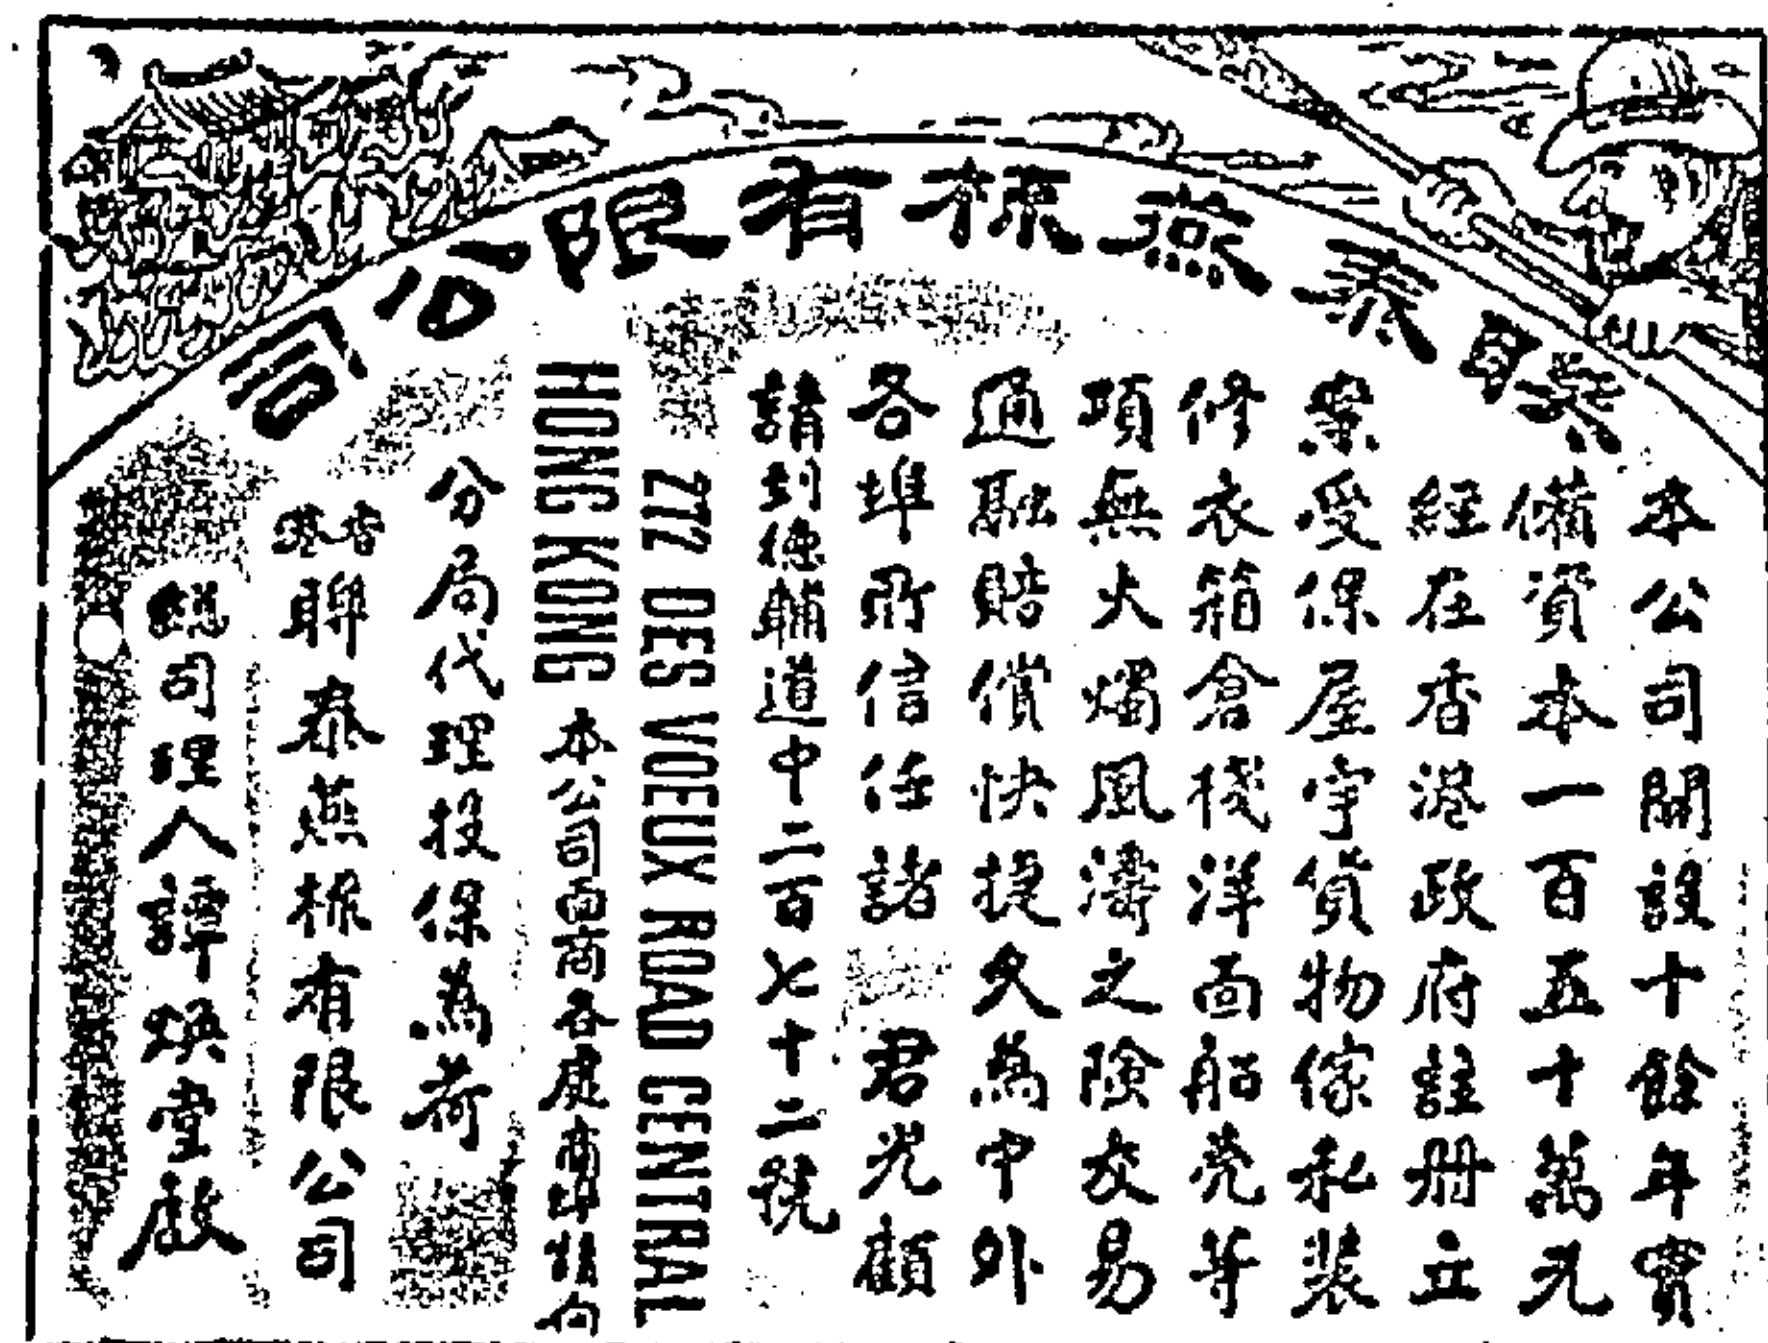 聯泰燕梳有限公司
本公司開設十餘年實
備資本一百五十萬元
經在香港政府註冊立
案受保屋宇貨物傢私裝
修衣箱倉棧洋面船壳等
項無火燭風濤之險交易
通融賠償快捷久為中外
各埠所信任諸君光顧
請到德輔道中二百七十二號
272 DES VOEUX ROAD CENTRAL
HONG KONG 本公司面商各處商埠請向
分局代理投保為荷
香港聯泰燕梳有限公司
總司理人譚煥堂啟